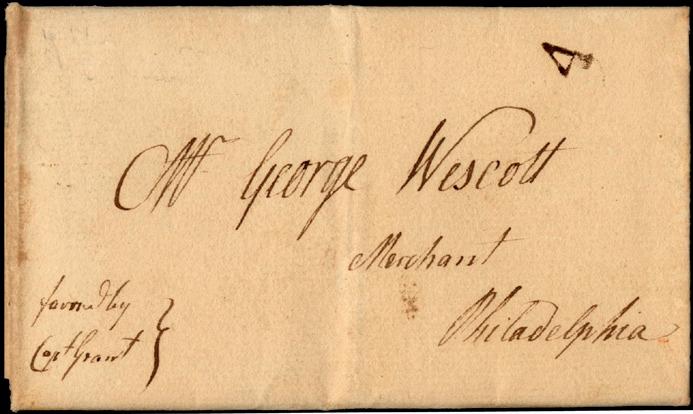 4
Mr George Wescott
Merchant
Philadelphia
favored by
Capt Grant